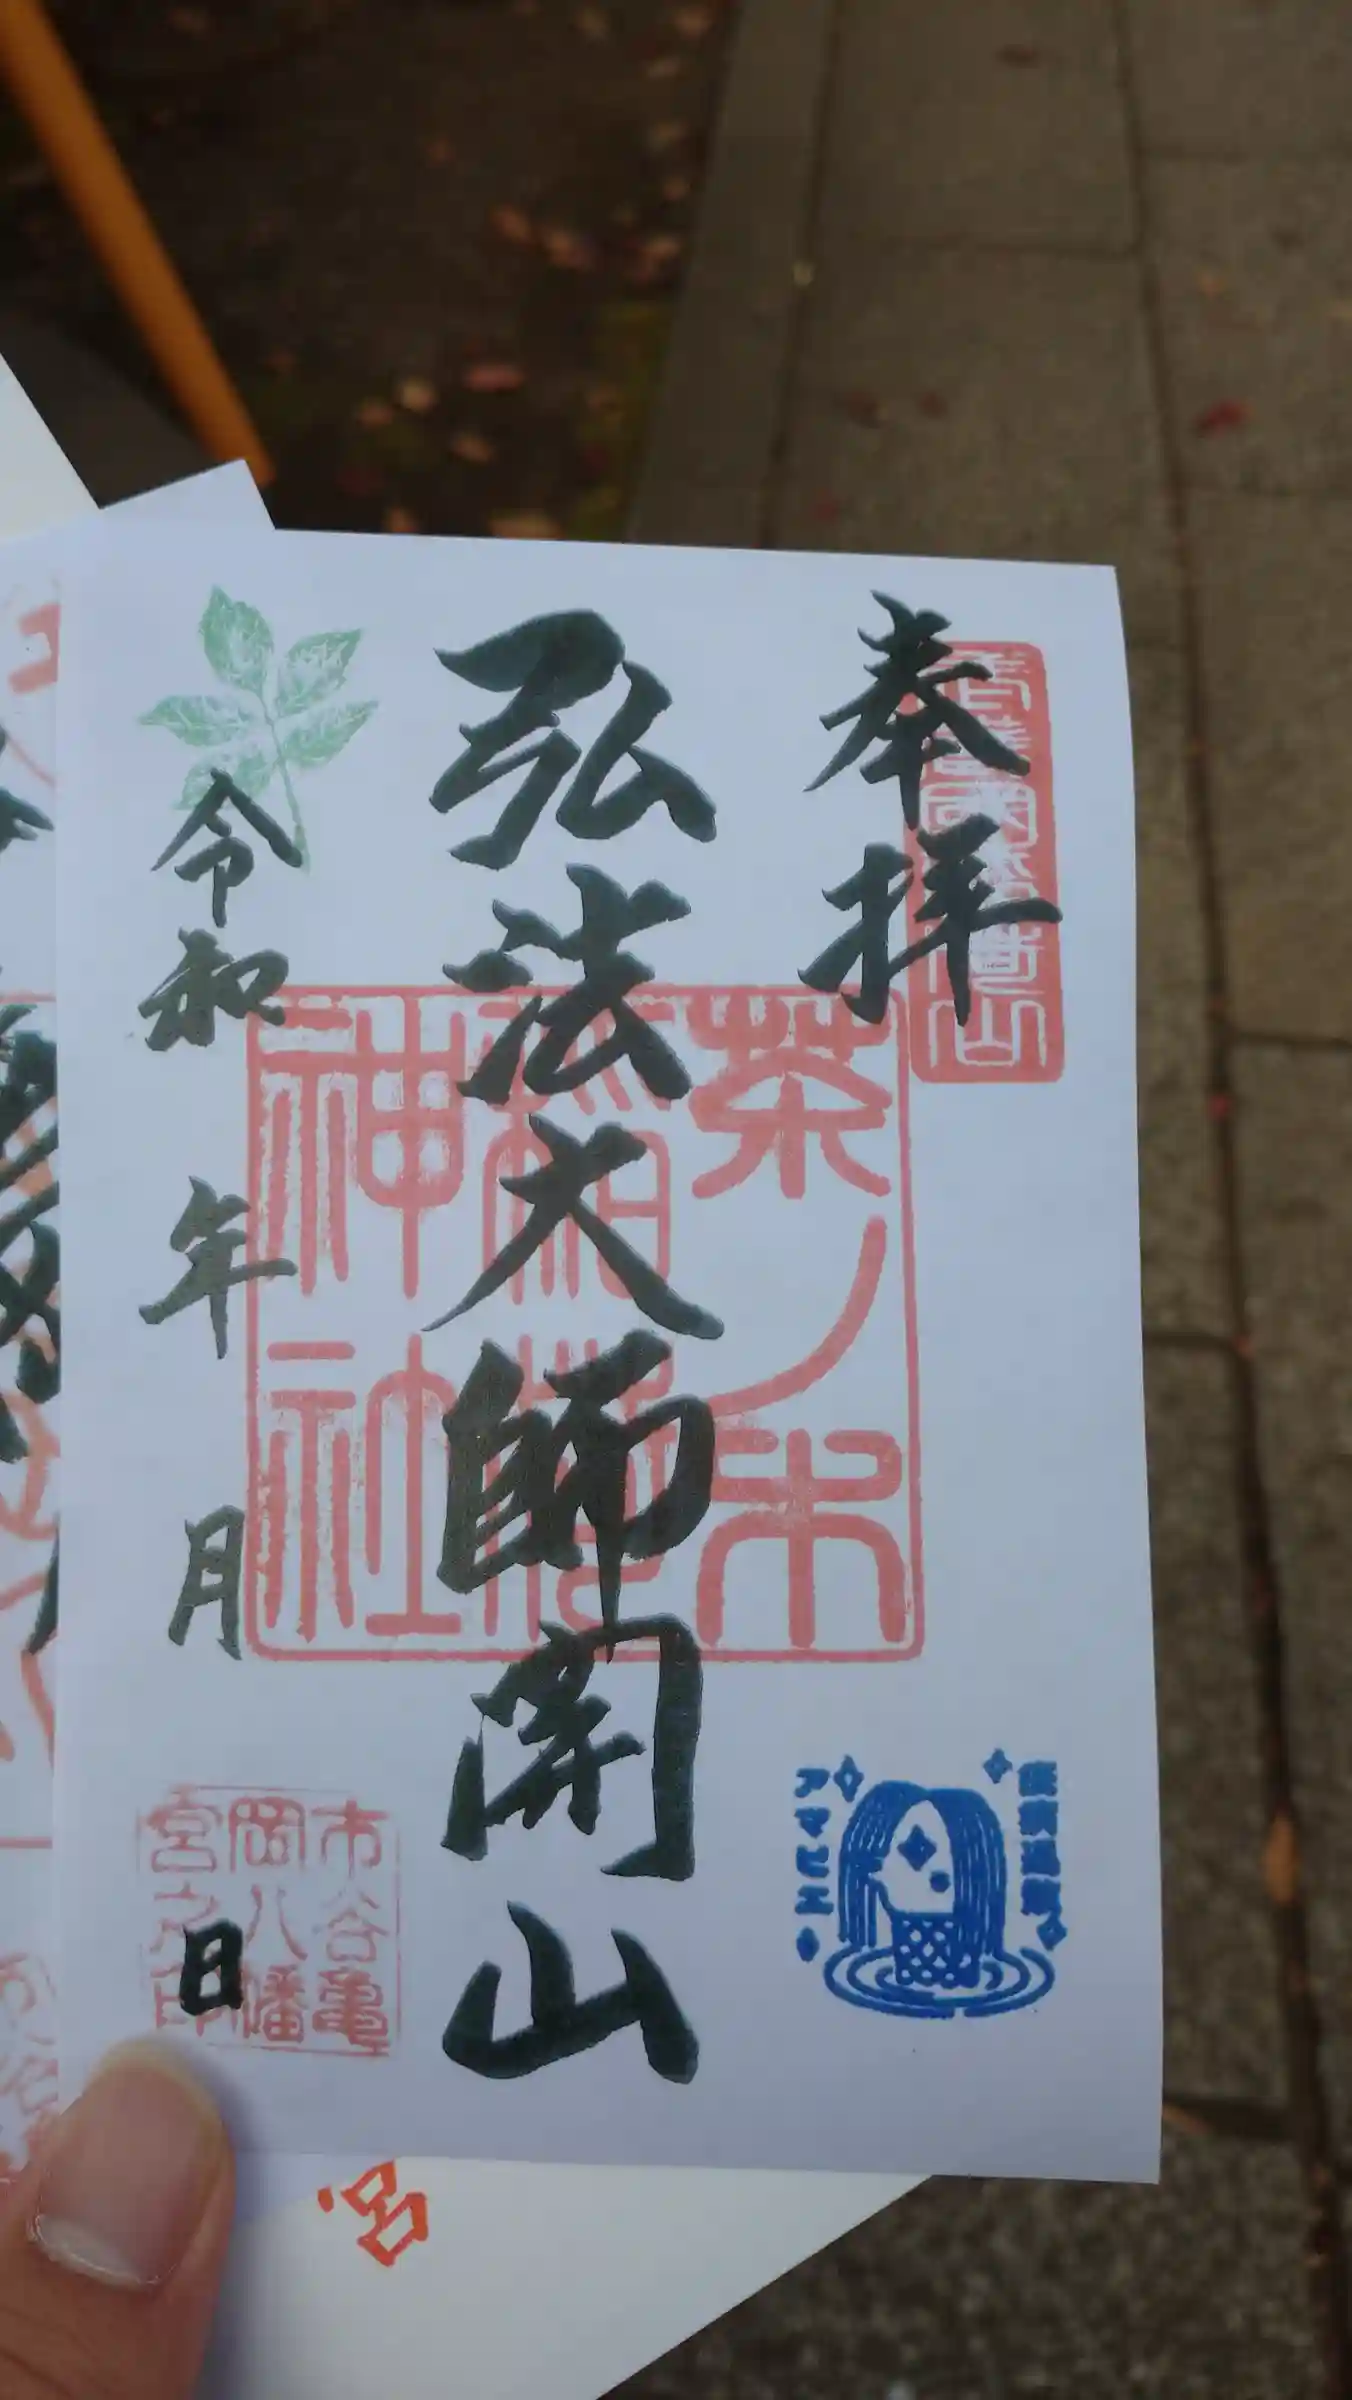 奉拝
弘法大師開山
令和 年 月 日
茶ノ木
稲荷
神社
市谷亀
岡八幡
宮之印
アマビエ
宮